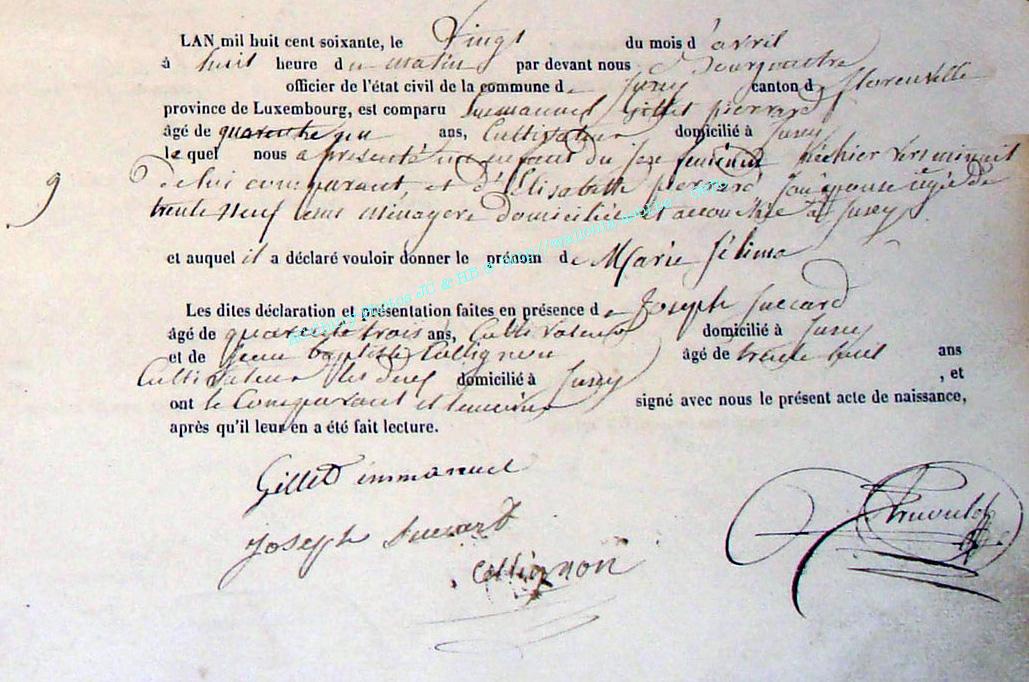 LAN mil huit cent soixante, le Vingt du mois d'avril
à huit heure du matin par devant nous
officier de l'état civil de la commune de Jusey canton de florenville
province de Luxembourg, est comparu Emmanuel Gillet pierrard
âgé de quarante ans, Cultivateur domicilié à Jusey
le quel nous a présenté un enfant du sexe féminin né hier vers minuit
de lui comparant, et d'Elisabette pierrard son épouse agée de
trente neuf ans ménagere domiciliée et accouchée à Jusey
9
et auquel il a déclaré vouloir donner le prénom de Marie Félima
Les dites déclaration et présentation faites en présence de Joseph Succard
âgé de quarante trois ans, Cultivateur domicilié à Jusey
et de Jean baptiste Collignon âgé de trente huit ans
Cultivateur les deux domicilié à Jusey , et
ont le Comparant et temoins signé avec nous le présent acte de naissance,
après qu'il leur en a été fait lecture.
Gillet immanuel
Joseph Succard
Collignon